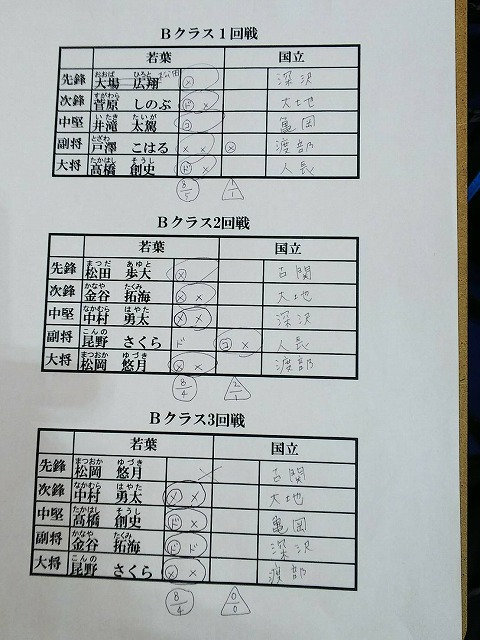 Bクラス1回戦
若葉 国立
おおば ひろと
先鋒 大場 広翔 ㋱ 深沢
すがわら
次鋒 菅原 しのぶ ド メ 大地
いたき たいが
中堅 井滝 太駕 コ 亀岡
とざわ
副将 戸澤 こはる メ メ メ 渡部
たかはし そうし
大将 高橋 創史 ド メ 人長
8/5 1/1
Bクラス2回戦
若葉 国立
まつだ あゆと
先鋒 松田 歩大 メ 古関
かなや たくみ
次鋒 金谷 拓海 メ メ 大地
なかむら はやた
中堅 中村 勇太 メ メ 深沢
こんの
副将 昆野 さくら ド コ メ 人長
まつおか ゆづき
大将 松岡 悠月 メ メ 渡部
8/4 2/1
Bクラス3回戦
若葉 国立
まつおか ゆづき
先鋒 松岡 悠月 古関
なかむら はやた
次鋒 中村 勇太 メ メ 大地
たかはし そうし
中堅 高橋 創史 ド メ 亀岡
かなや たくみ
副将 金谷 拓海 ド ド 深沢
こんの
大将 昆野 さくら メ メ 渡部
8/4 0/0